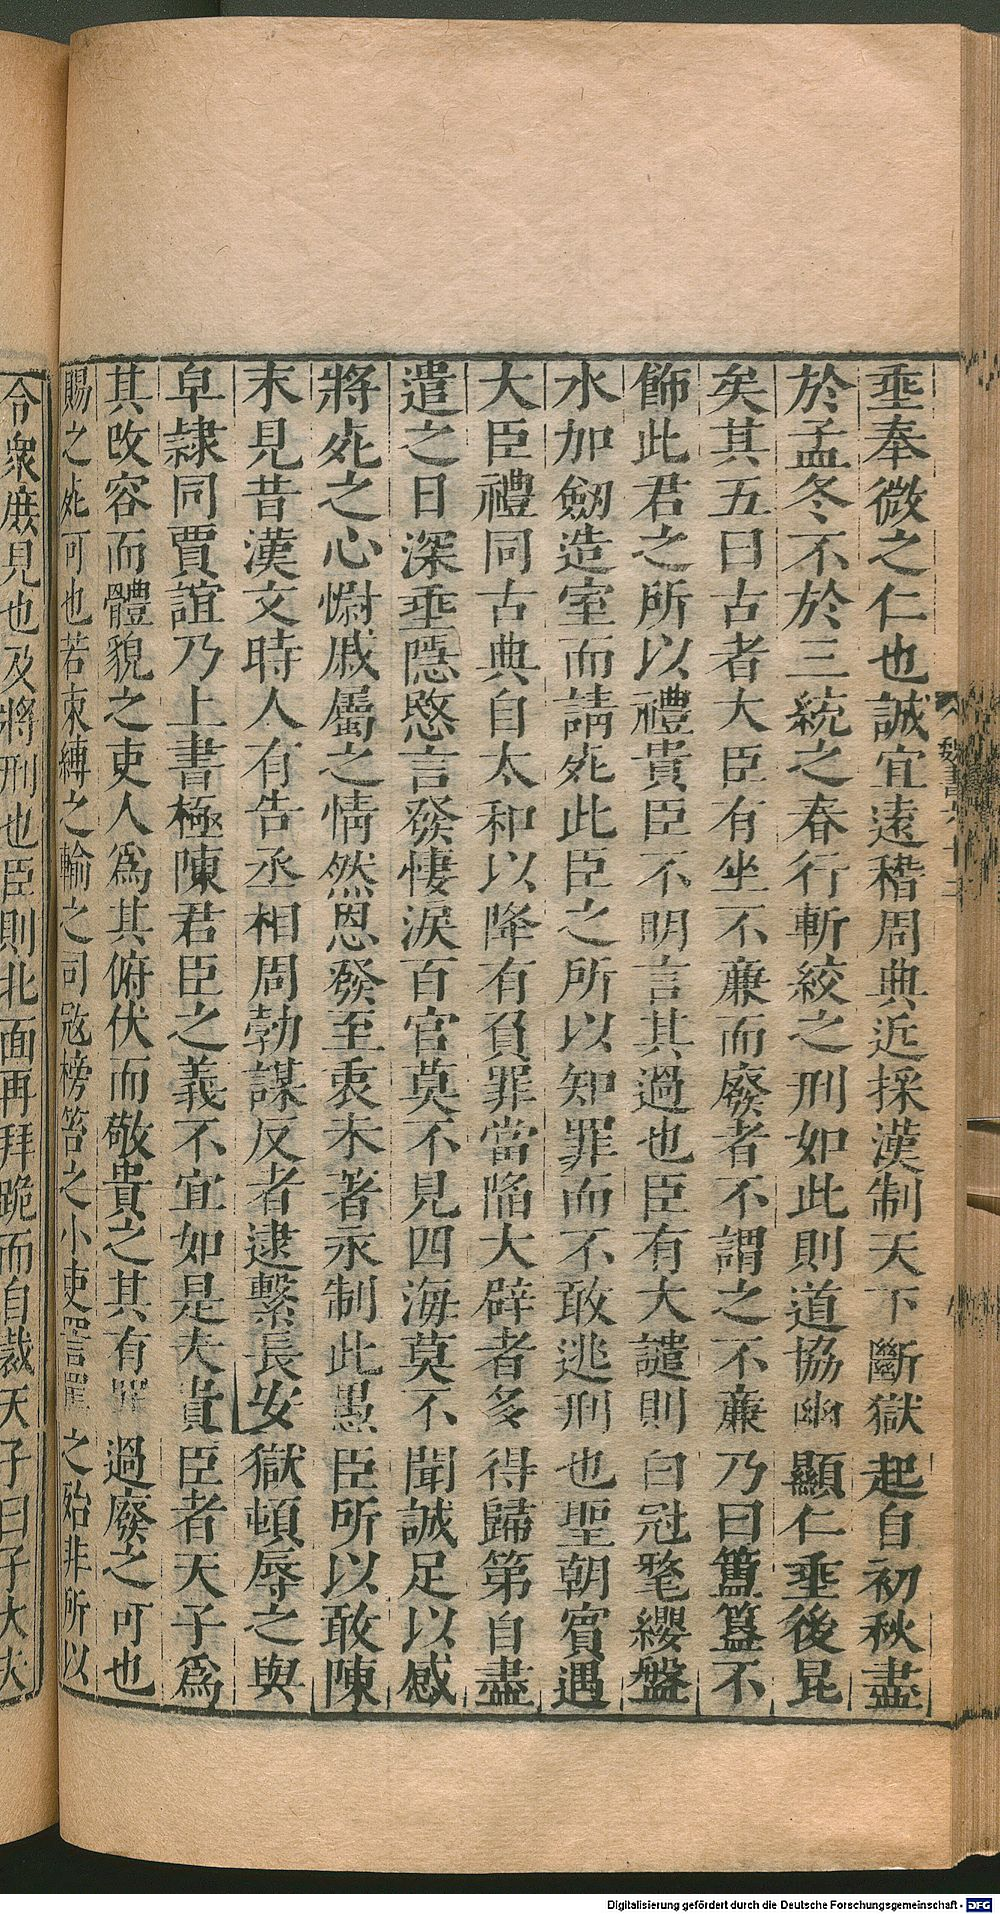 垂奉微之仁也誠宜遠稽周典近採漢制天下斷獄起自初秋盡
於孟冬不於三統之春行斬絞之刑如此則道協幽顯仁垂後昆
矣其五曰古者大臣有坐不廉而廢者不謂之不廉乃曰簠簋不
飾此君之所以禮貴臣不明言其過也臣有大譴則白冠氂纓盤
水加劔造室而請死此臣之所以知罪而不敢逃刑也聖朝賓遇
大臣禮同古典自太和以降有負罪當陷大辟者多得歸第自盡
遣之日深垂隱愍言發悽淚百官莫不見四海莫不聞誠足以感
將死之心慰戚屬之情然恩發至衷未著永制此愚臣所以敢陳
末見昔漢文時人有告丞相周勃謀反者逮繫長安獄頓辱之與
皁隷同賈誼乃上書極陳君臣之義不宜如是夫貴臣者天子爲
其改容而體貌之吏人爲其俯伏而敬貴之其有罪過廢之可也
賜之死可也若束縛之輸之司寇榜笞之小吏詈罵之殆非所以
令衆庶見也及將刑也臣則北面再拜跪而自裁天子曰子大夫
魏書
Digitalisierung gefördert durch die Deutsche Forschungsgemeinschaft - DFG